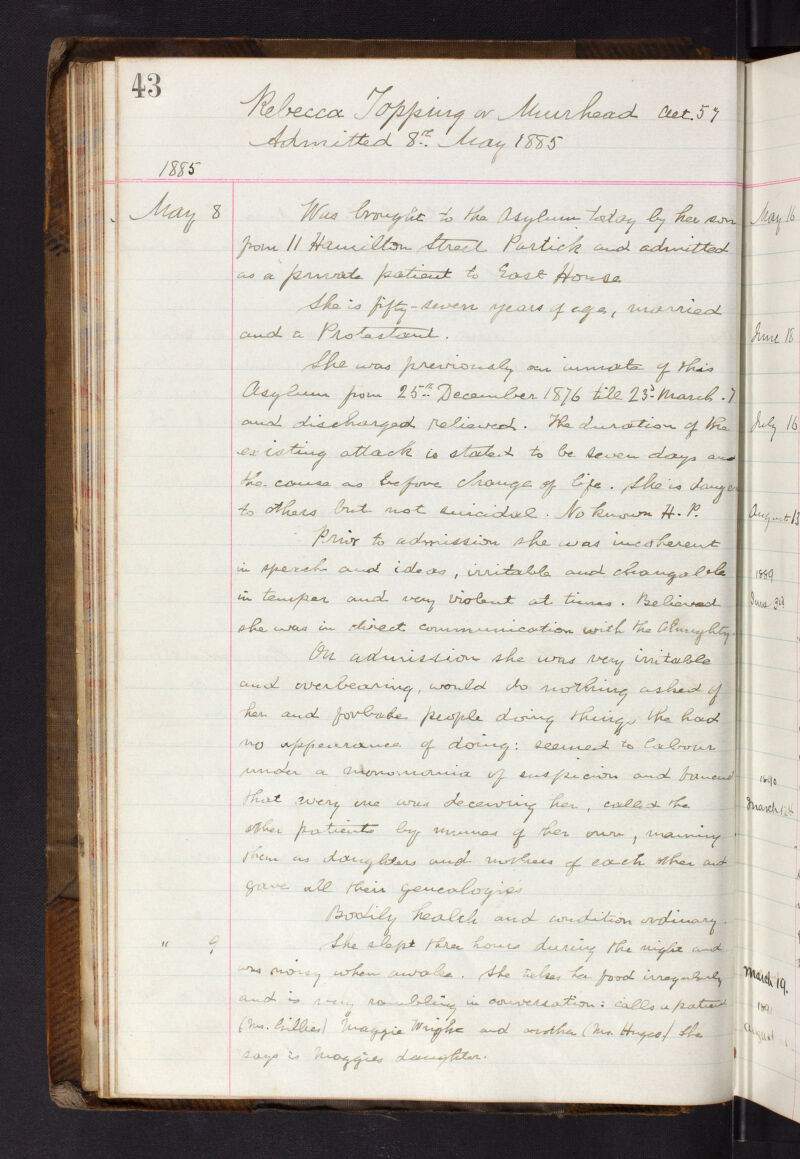 43
Rebecca Topping or Muirhead aet. 57
Admitted 8th May 1885
1885
May 8 Was brought to the Asylum today by her son
from 11 Hamilton Street Partick and admitted
as a private patient to East House
She is fifty-seven years of age, married
and a Protestant.
She was previously an inmate of this
Asylum from 25th December 1876 till 23d March . 7
and discharged relieved. The duration of the
existing attack is stated to be seven days and
the cause as before change of life. She is dange
to others but not suicidal. No known H. P.
Prior to admission she was incoherent
in speech and ideas, irritable and changable
in temper and very violent at times. Believed
she was in direct communication with the Almighty.
On admission she was very irritable
and overbearing, would do nothing asked of
her and forbade people doing things she had
no appearance of doing: seemed to labour
under a monomania of suspicion and fancied
that every one was deceiving her, called the
other patients by names of her own, naming
them as daughters and mothers of each other and
gave all their genealogies
Bodily health and condition ordinary.
" 9 She slept three hours during the night and
was noisy when awake. She takes her food irregularly
and is very rambling in conversation: calls a patient
(Mrs. Gillies) Maggie Wright and another (Mrs. ) she
says is Maggies daughter.
May 16
June 18
July 16
August 13
1889
June 3rd
1890
March 12th
March 19.
1891
August